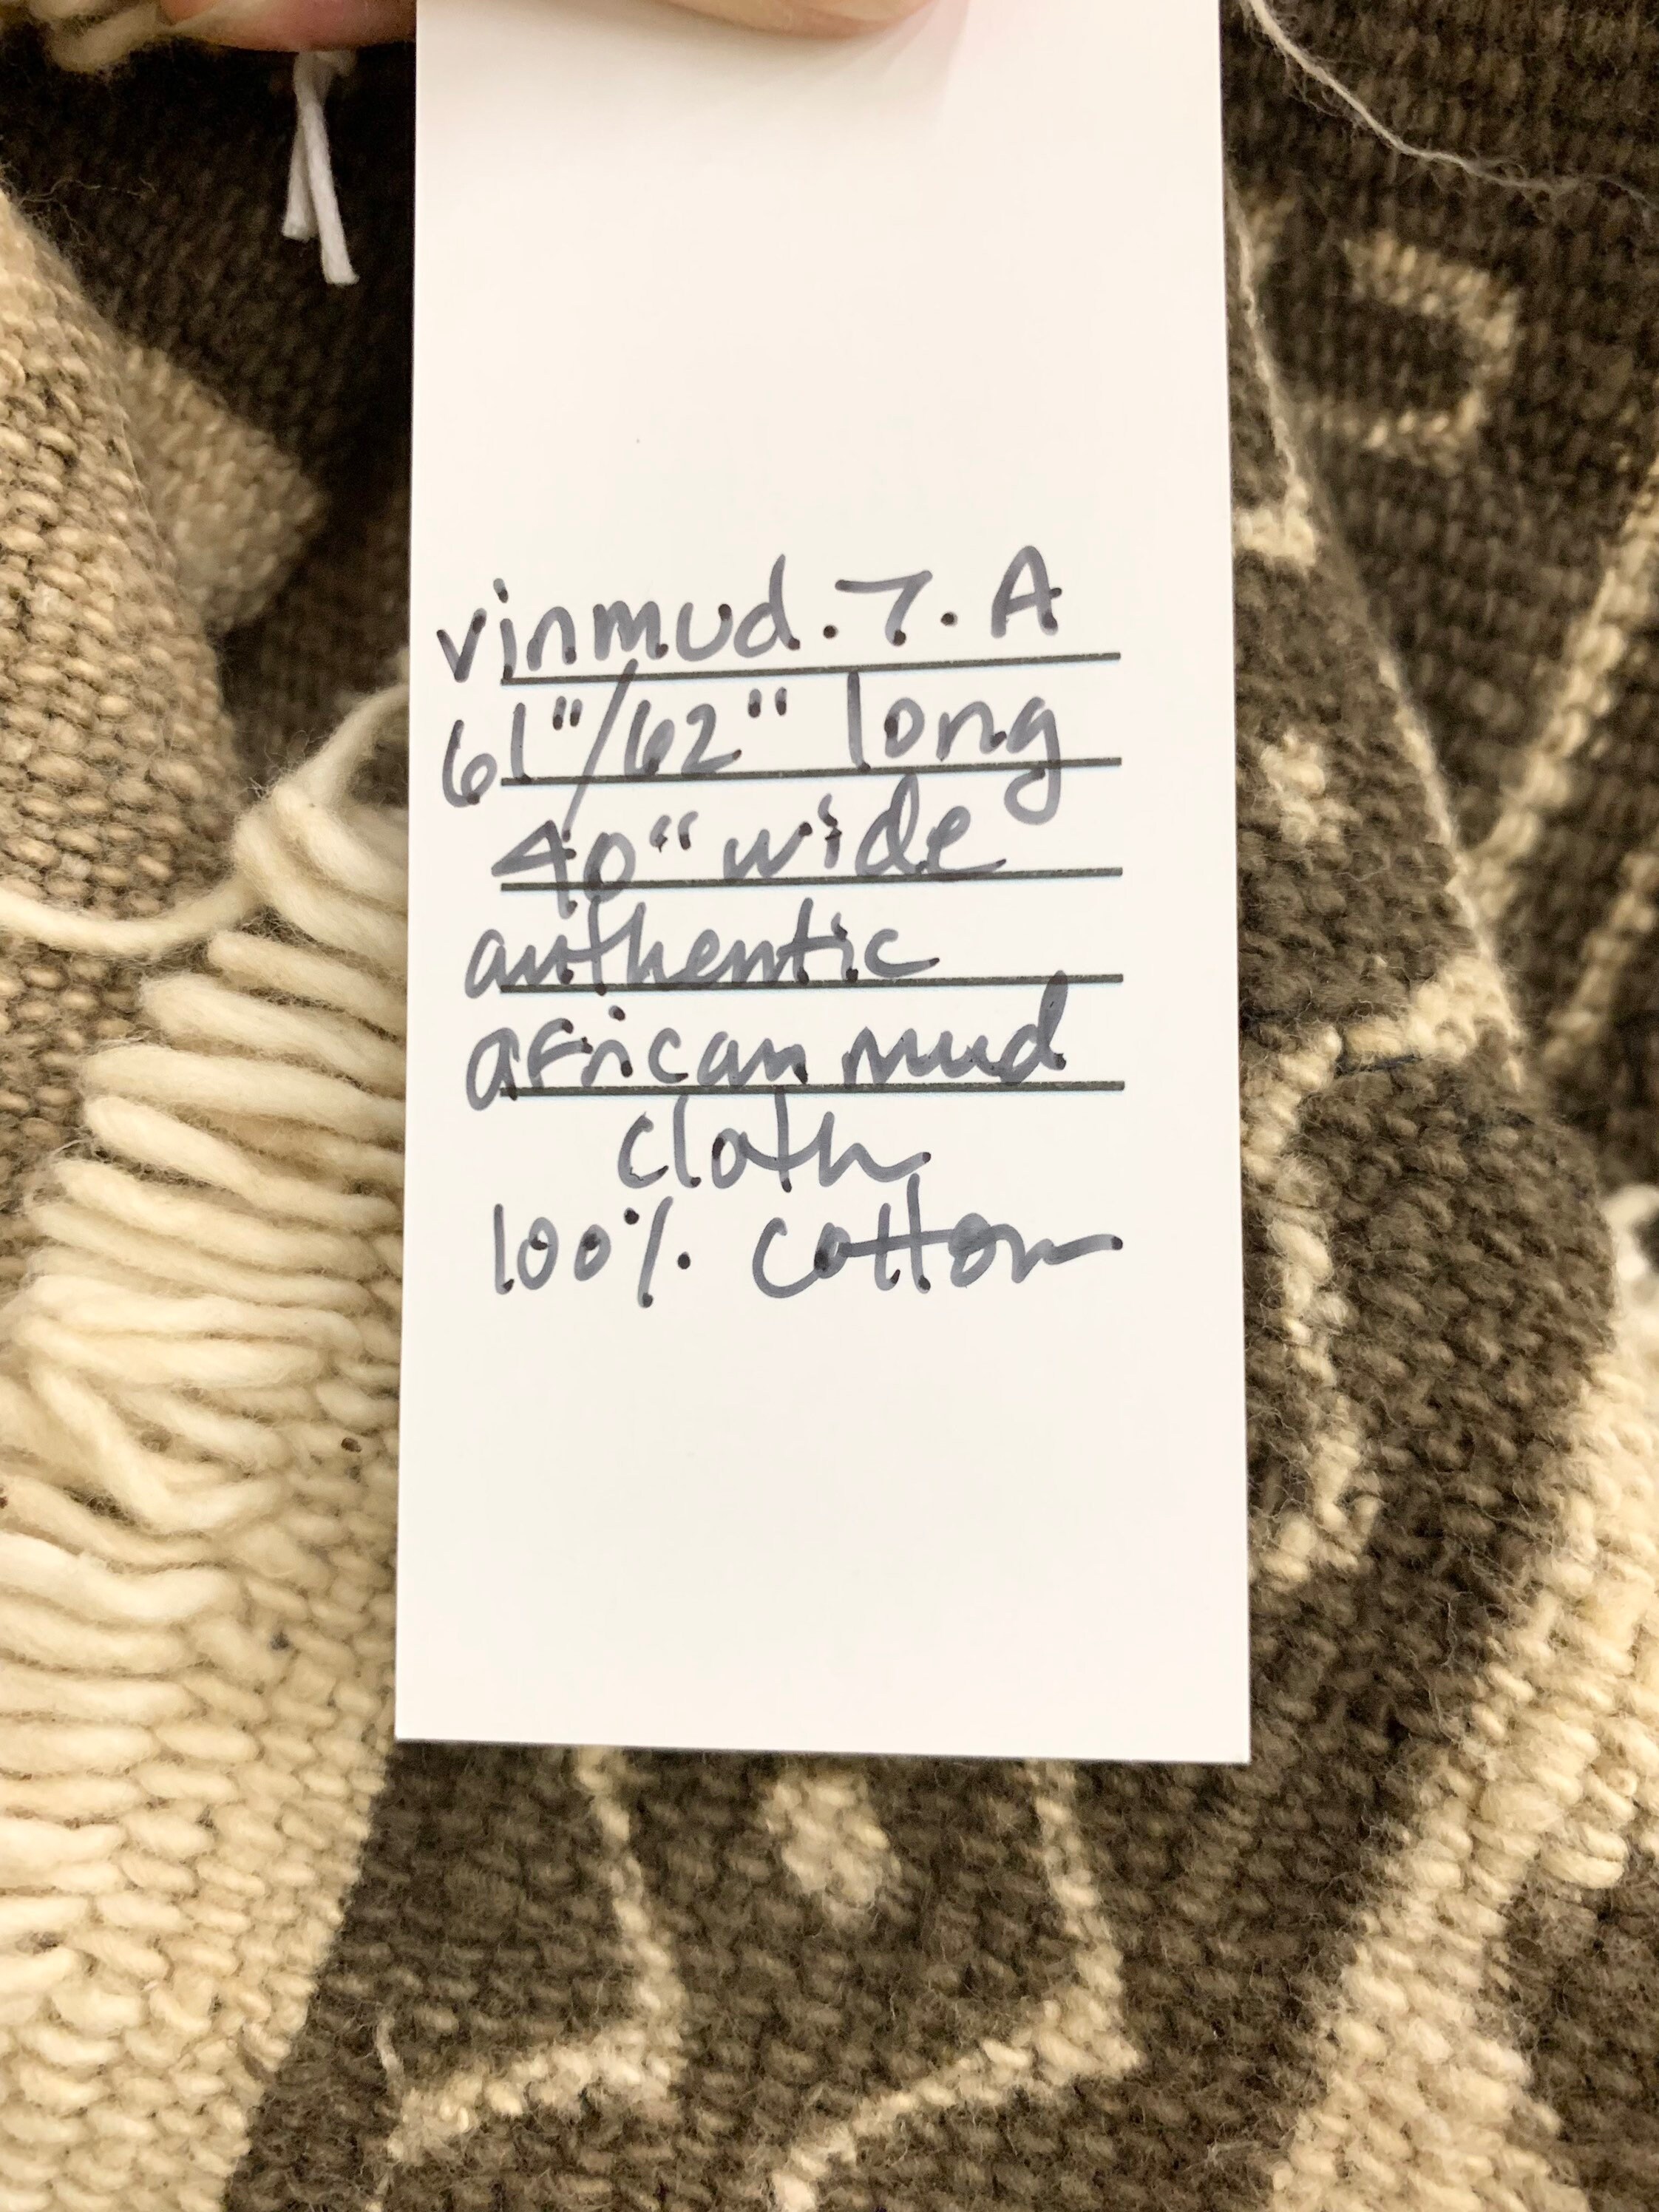 vinmud.7.A
61"/62" long
40" wide
authentic
african mud
cloth
100% cotton